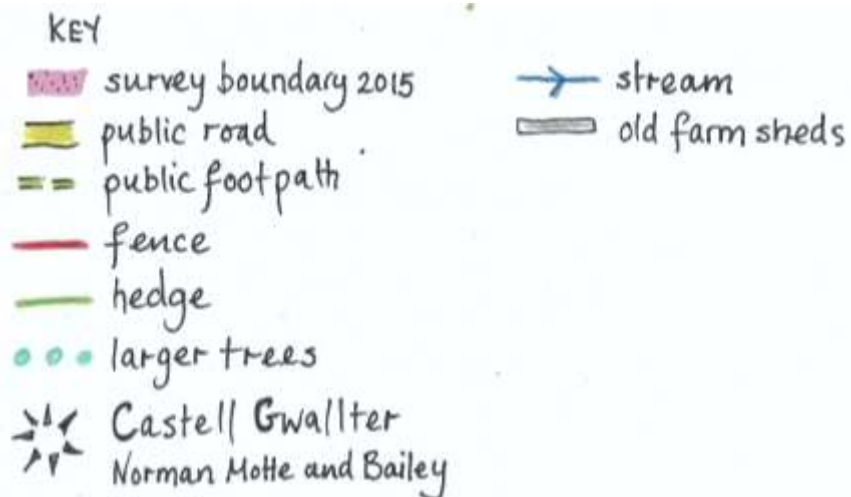 KEY
survey boundary 2015
public road
public footpath
fence
hedge
larger trees
Castell Gwallter
Norman Motte and Bailey
stream
old farm sheds